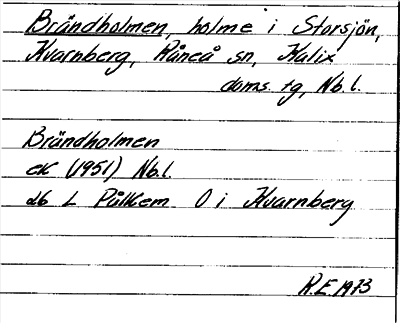 Brändholmen, holme i Storsjön,
Kvarnberg, Råneå sn, Kalix
doms. tg, Nb. l.
Brändholmen
ek (1951) Nb.l.
db L Pålkem O i Kvarnberg
R.E. 1973